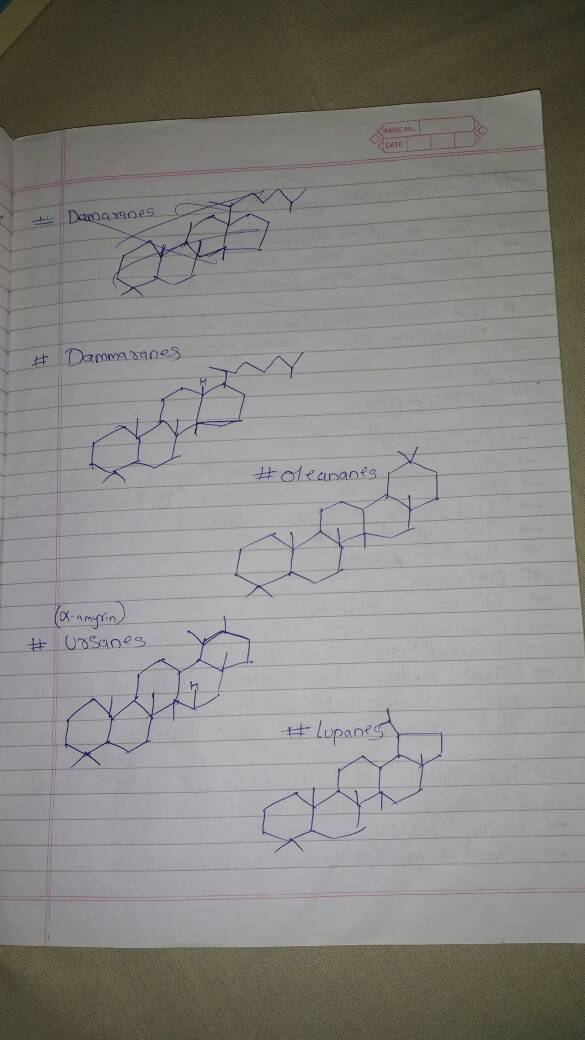 PAGE No.
DATE
# Damaranes
# Dammaranes
H
# Oleananes
(α-amyrin)
# Ursanes
H
# Lupanes